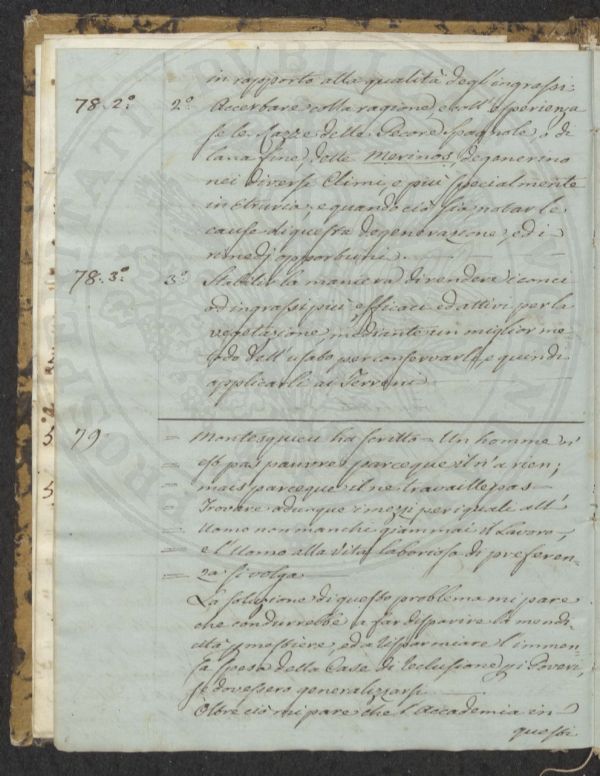 in rapporto alla qualità degl'ingrassi.
78. 2.° 2.° Accertare colla ragione, e coll'esperienza
se le Razze delle Pecore Spagnole, di
lana fine, dette Merinos, deganerino
nei diversi Climi, e più specialmente
in Etruria; e quando ciò sia, notar le
cause di questa degenerazione, ed i
rimedj opportuni.
78. 3.° 3.° Stabilir la maniera di rendere i conci
od ingrassi più efficaci ed attivi per la
vegetazione, mediante un miglior me
todo dell'usato per conservarli, e quindi
applicarli ai Terreni.
5 79 = Montesquieu ha scritto = Un homme n'
est pas pauvre parceque il n'a rien;
5 mais parceque il ne travaille pas =
= Trovare adunque i mezzi per i quali all'
= Uomo non manchi giammai il Lavoro,
= e l'Uomo alla Vita laboriosa di preferen-
= za si volga =
La soluzione di questo problema mi pare
che condurrebbe a far disparire la mendi-
cità p mestiere, ed a risparmiare l'immen-
sa spesa delle Case di reclusione pi Poveri,
se dovessero generalizzarsi.
Oltre ciò mi pare che l'Accademia in
questi